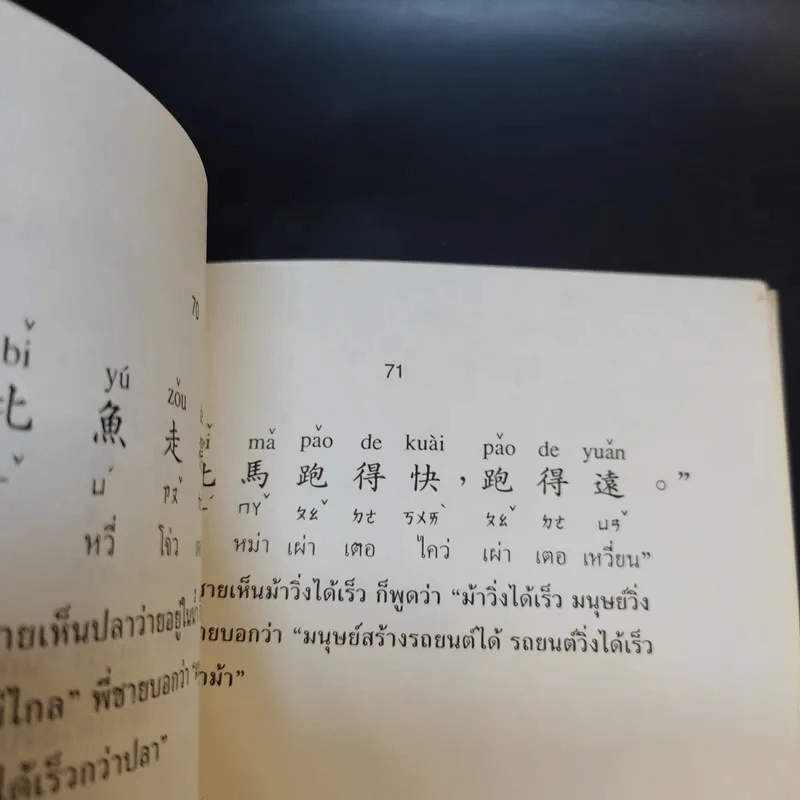 70
bǐ yú zǒu
比 魚 走
ㄩˊ ㄗㄡˇ
หวี่ โจ่ว
ายเห็นปลาว่ายอยู่ใน
ไกล” พี่ชายบอกว่า
ได้เร็วกว่าปลา”
71
bǐ mǎ pǎo de kuài pǎo de yuǎn
比 馬 跑 得 快，跑 得 遠 。”
ㄇㄚˇ ㄆㄠˇ ㄉㄜ ㄎㄨㄞˋ ㄆㄠˇ ㄉㄜ ㄩㄢˇ
หม่า เผ่า เตอ ไคว่ เผ่า เตอ เหวี่ยน”
ชายเห็นม้าวิ่งได้เร็ว ก็พูดว่า “ม้าวิ่งได้เร็ว มนุษย์วิ่ง
ายบอกว่า “มนุษย์สร้างรถยนต์ได้ รถยนต์วิ่งได้เร็ว
ม้า”